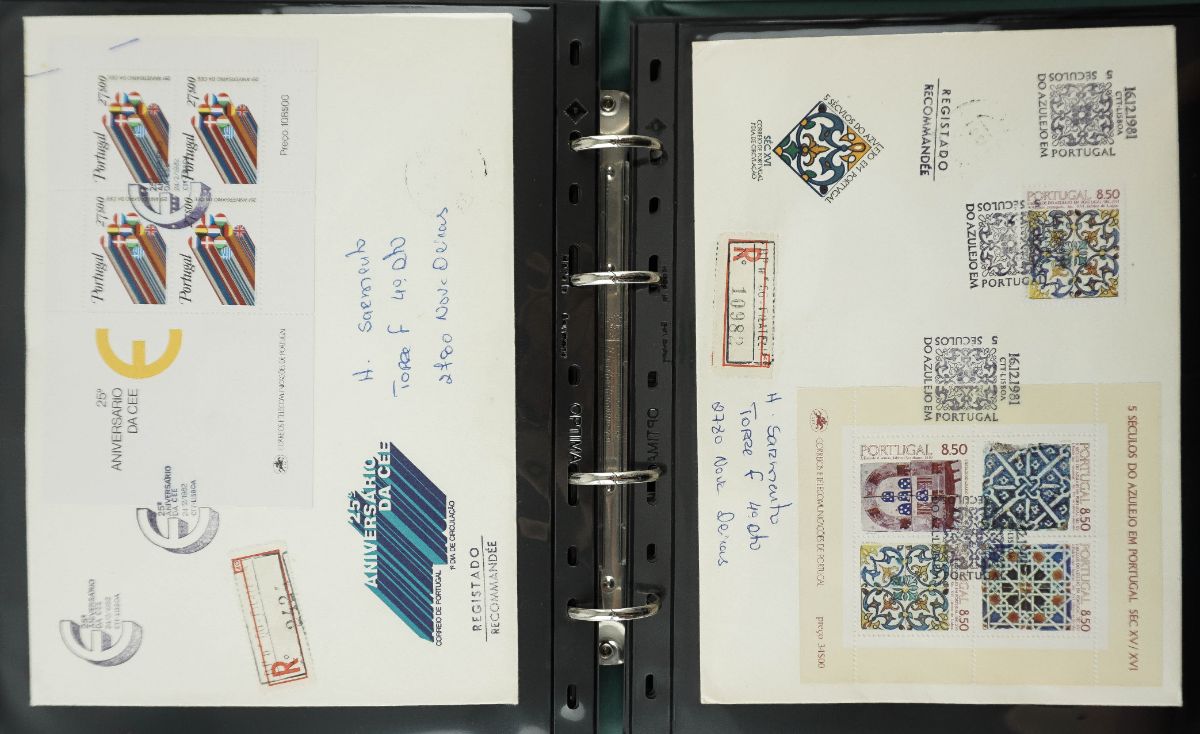 25º ANIVERSÁRIO DA CEE
27$00
Portugal
25º ANIVERSÁRIO DA CEE
27$00
Portugal
Preço 108$00
27$00
Portugal
$00
Portugal
25º
ANIVERSÁRIO
DA CEE
CORREIOS E TELECOMUNICAÇÕES DE PORTUGAL
25º
ANIVERSÁRIO
DA CEE
24/2/1982
CTT-LISBOA
25º
ANIVERSÁRIO
DA CEE
24/2/1982
CTT-LISBOA
H. Sarmento
Torre F 4º Dto
2780 Nova Oeiras
25º
ANIVERSÁRIO
DA CEE
CORREIO DE PORTUGAL
1º DIA DE CIRCULAÇÃO
REGISTADO
RECOMMANDÉE
Rº
OPTIMA
5 SÉCULOS DO AZULEJO EM PORTUGAL
SÉC XVI
CORREIO DE PORTUGAL
1º DIA DE CIRCULAÇÃO
REGISTADO
RECOMMANDÉE
5 SÉCULOS
DO AZULEJO EM
PORTUGAL
16.12.1981
CTT-LISBOA
PORTUGAL 8.50
5 SÉCULOS
DO AZULEJO EM
PORTUGAL
Rº
1098
5 SÉCULOS
DO AZULEJO EM
PORTUGAL
16.12.1981
CTT-LISBOA
H. Sarmento
Torre F 4º Dto
2780 Nova Oeiras
5 SÉCULOS DO AZULEJO EM PORTUGAL SÉC XV/XVI
CORREIOS E TELECOMUNICAÇÕES DE PORTUGAL
preço 34$00
PORTUGAL 8.50
PORTUGAL 8.50
8.50
PORTUGAL 8.50